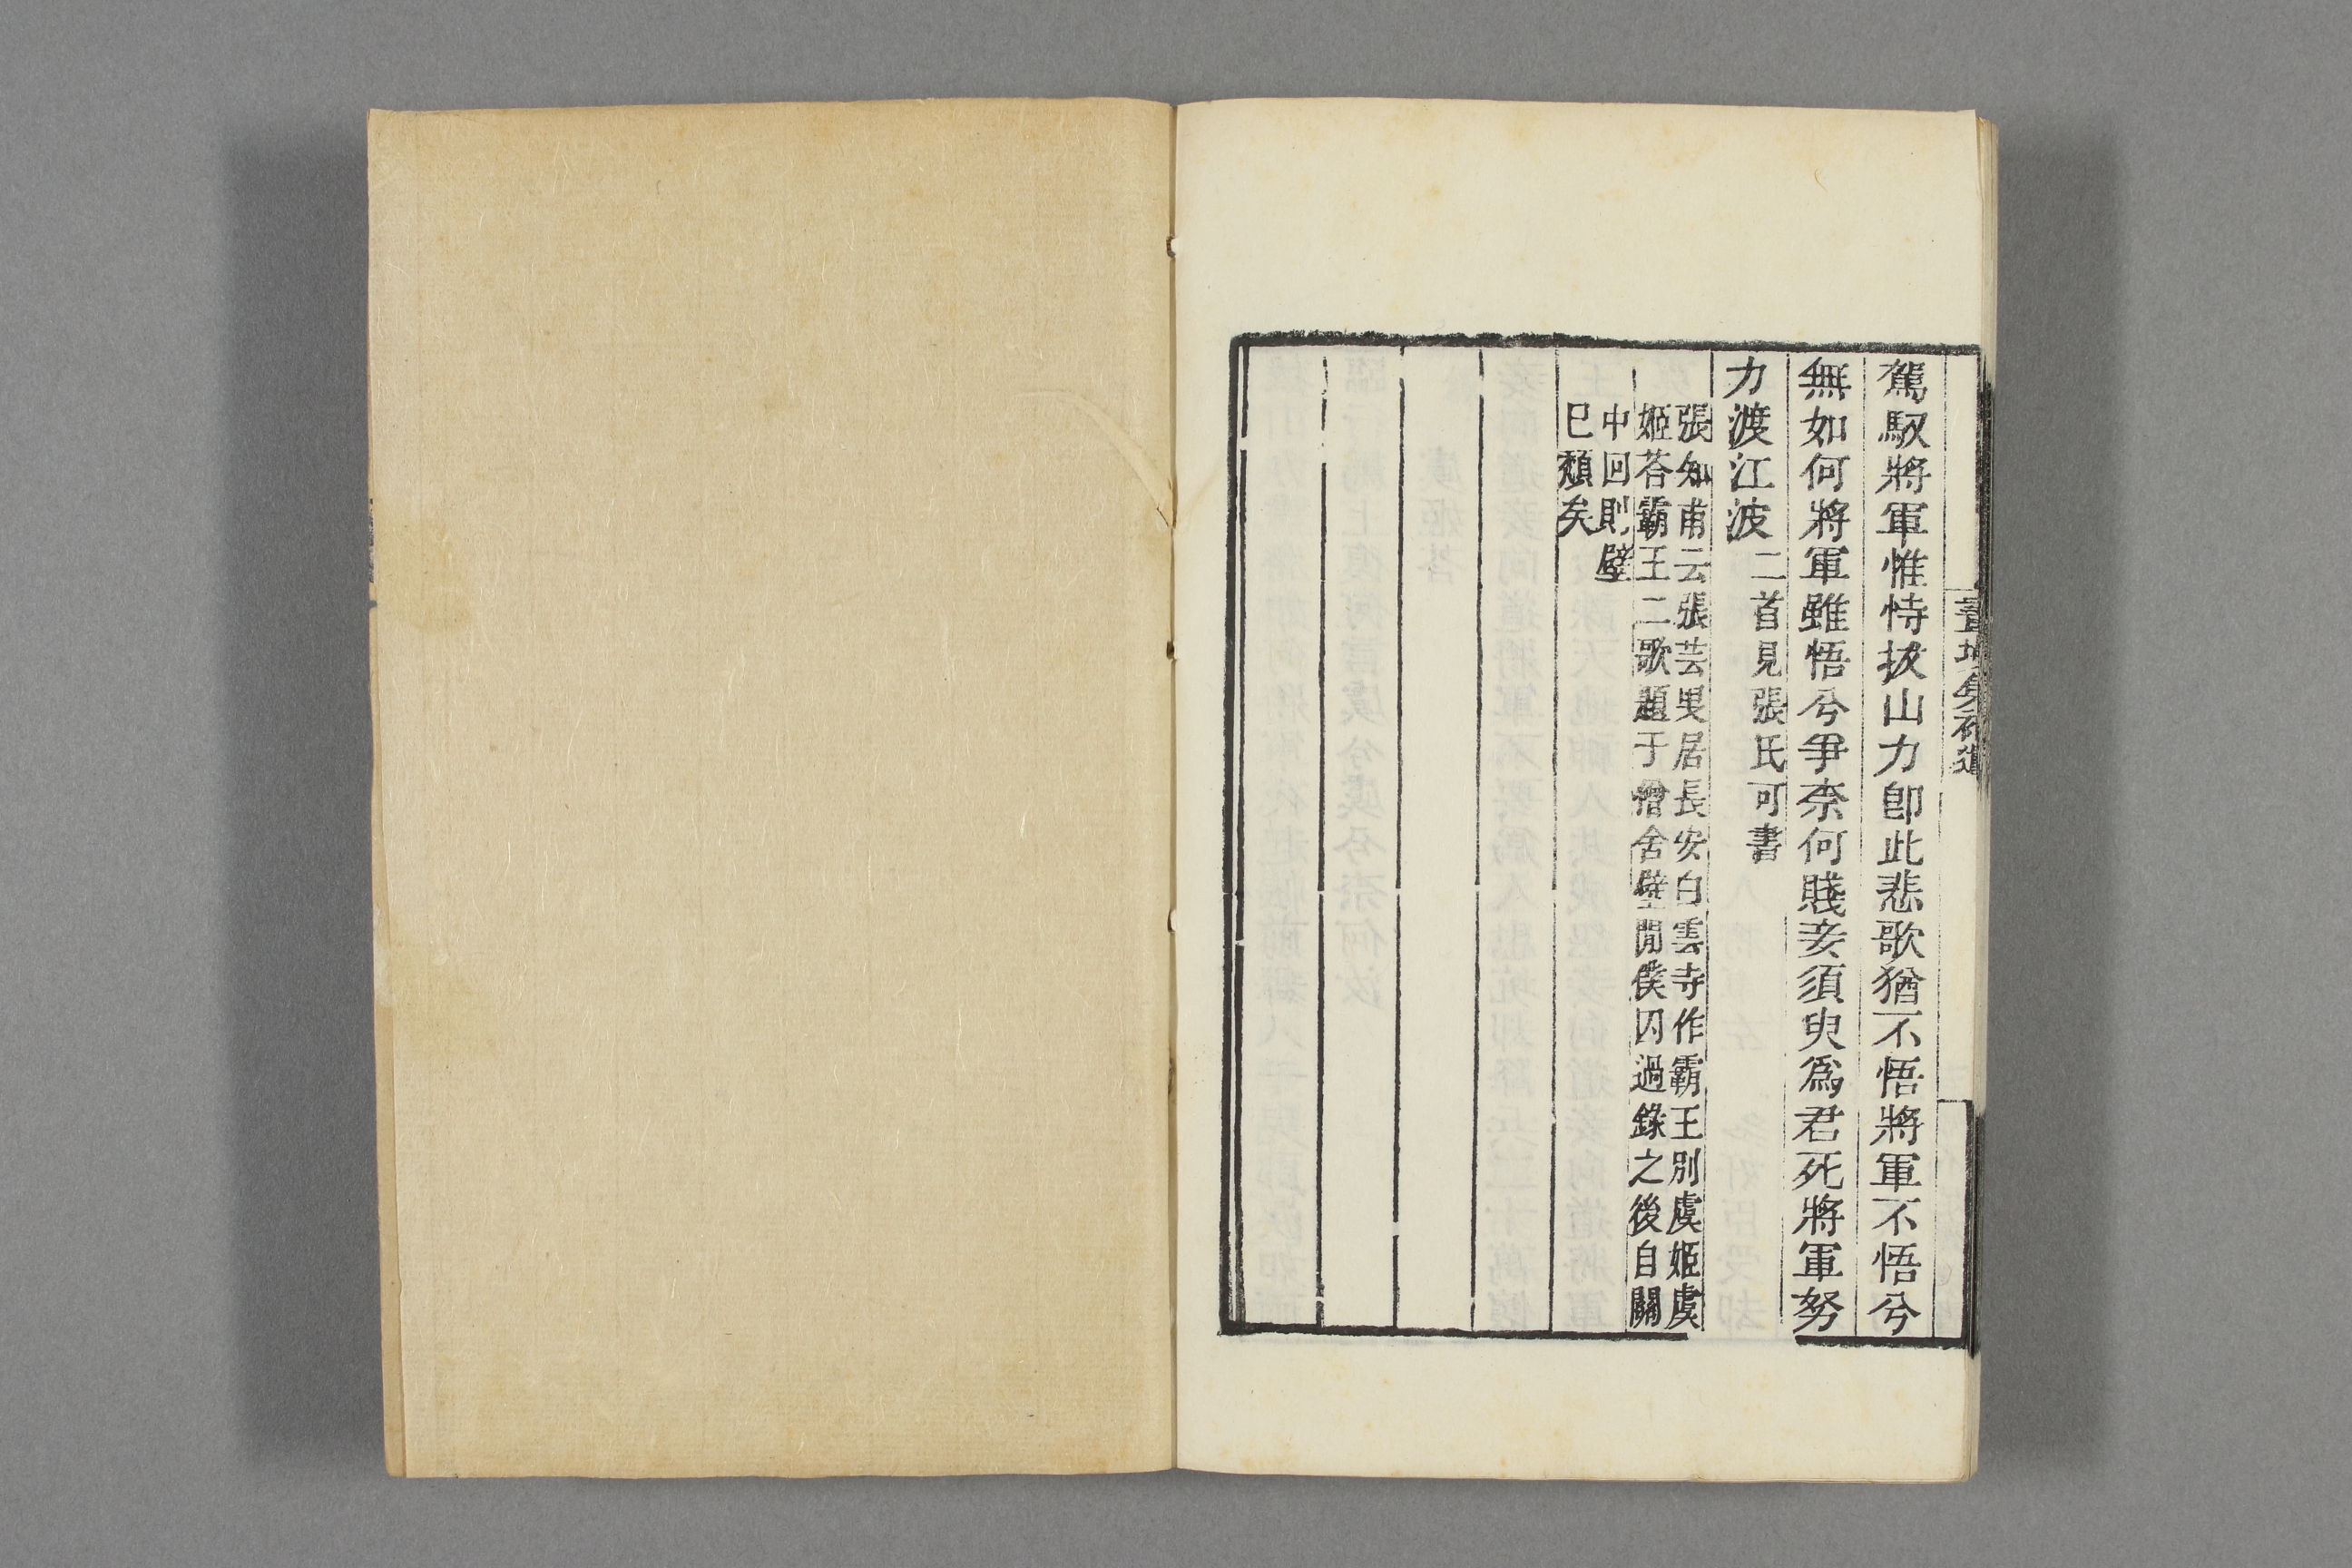 駕馭將軍惟恃拔山力卽此悲歌猶不悟將軍不悟兮
無如何將軍雖悟兮爭柰何賤妾須臾爲君死將軍努
力渡江波二首見張氏可書
張知甫云張芸叟居長安白雲寺作霸王別虞姬虞
姬荅霸王二歌題于僧舍壁閒僕因過錄之後自關
中回則壁
已頽矣
畫墁集補遺